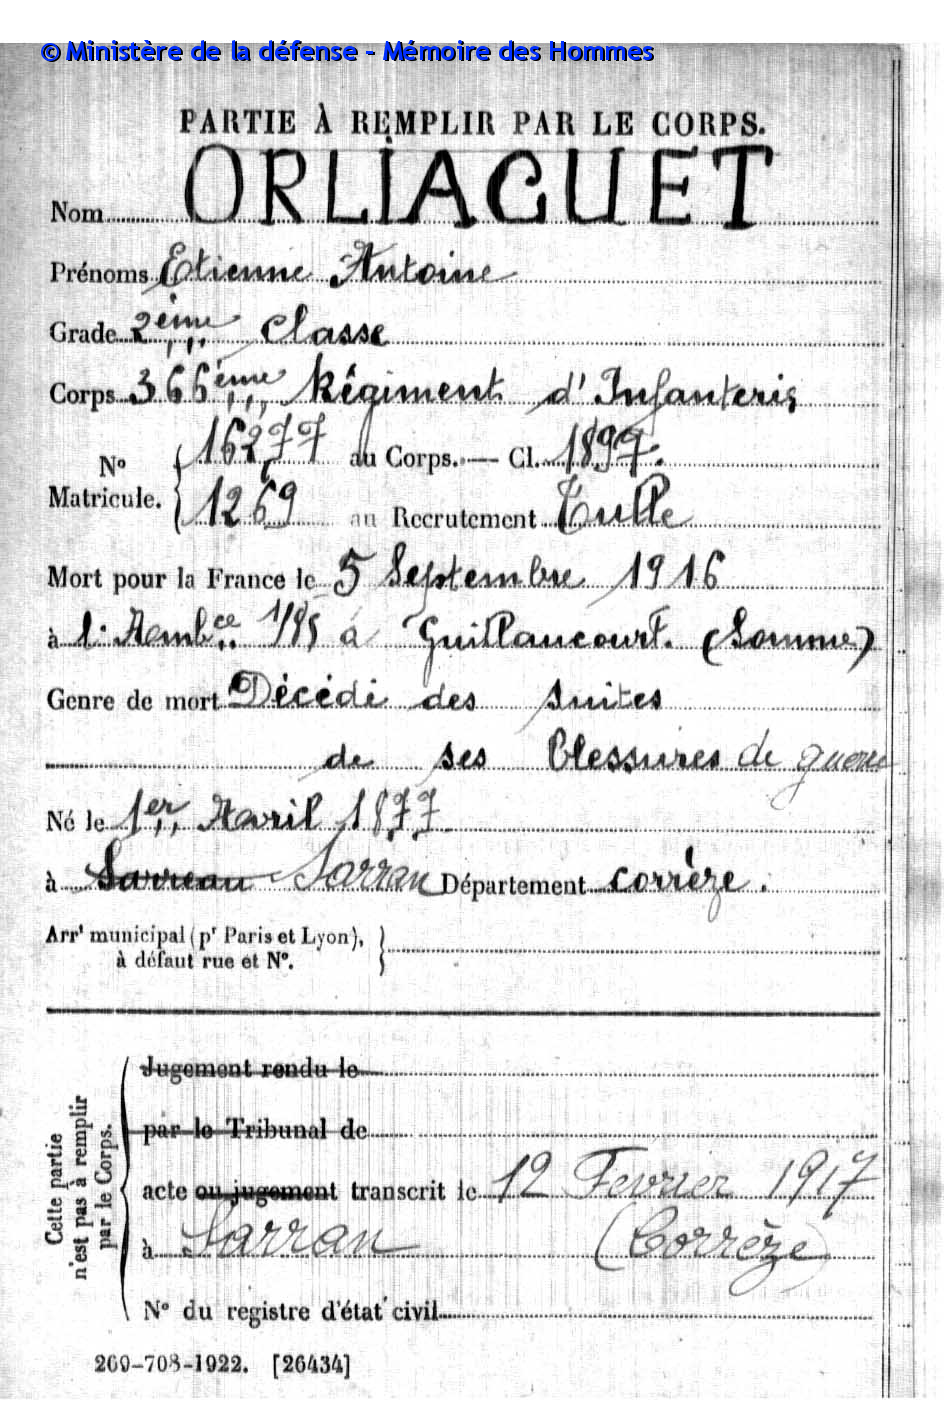 © Ministère de la défense - Mémoire des Hommes
PARTIE À REMPLIR PAR LE CORPS.
Nom ORLIAGUET
Prénoms Etienne Antoine
Grade 2ème classe
Corps 366ème Régiment d'Infanterie
No 16277 au Corps. — Cl. 1897.
Matricule. 1269 au Recrutement Tulle
Mort pour la France le 5 Septembre 1916
à l'Ambce 1/85 à Guillaucourt. (Somme)
Genre de mort Décédé des suites
de ses blessures de guerre
Né le 1er Avril 1877
à Sarreau Sarran Département Corrèze.
Arrt municipal (pr Paris et Lyon),
à défaut rue et No.
Cette partie
n'est pas à remplir
par le Corps.
Jugement rendu le
par le Tribunal de
acte ou jugement transcrit le 12 Fevrier 1917
à Sarran (Corrèze)
No du registre d'état civil
269-708-1922. [26434]